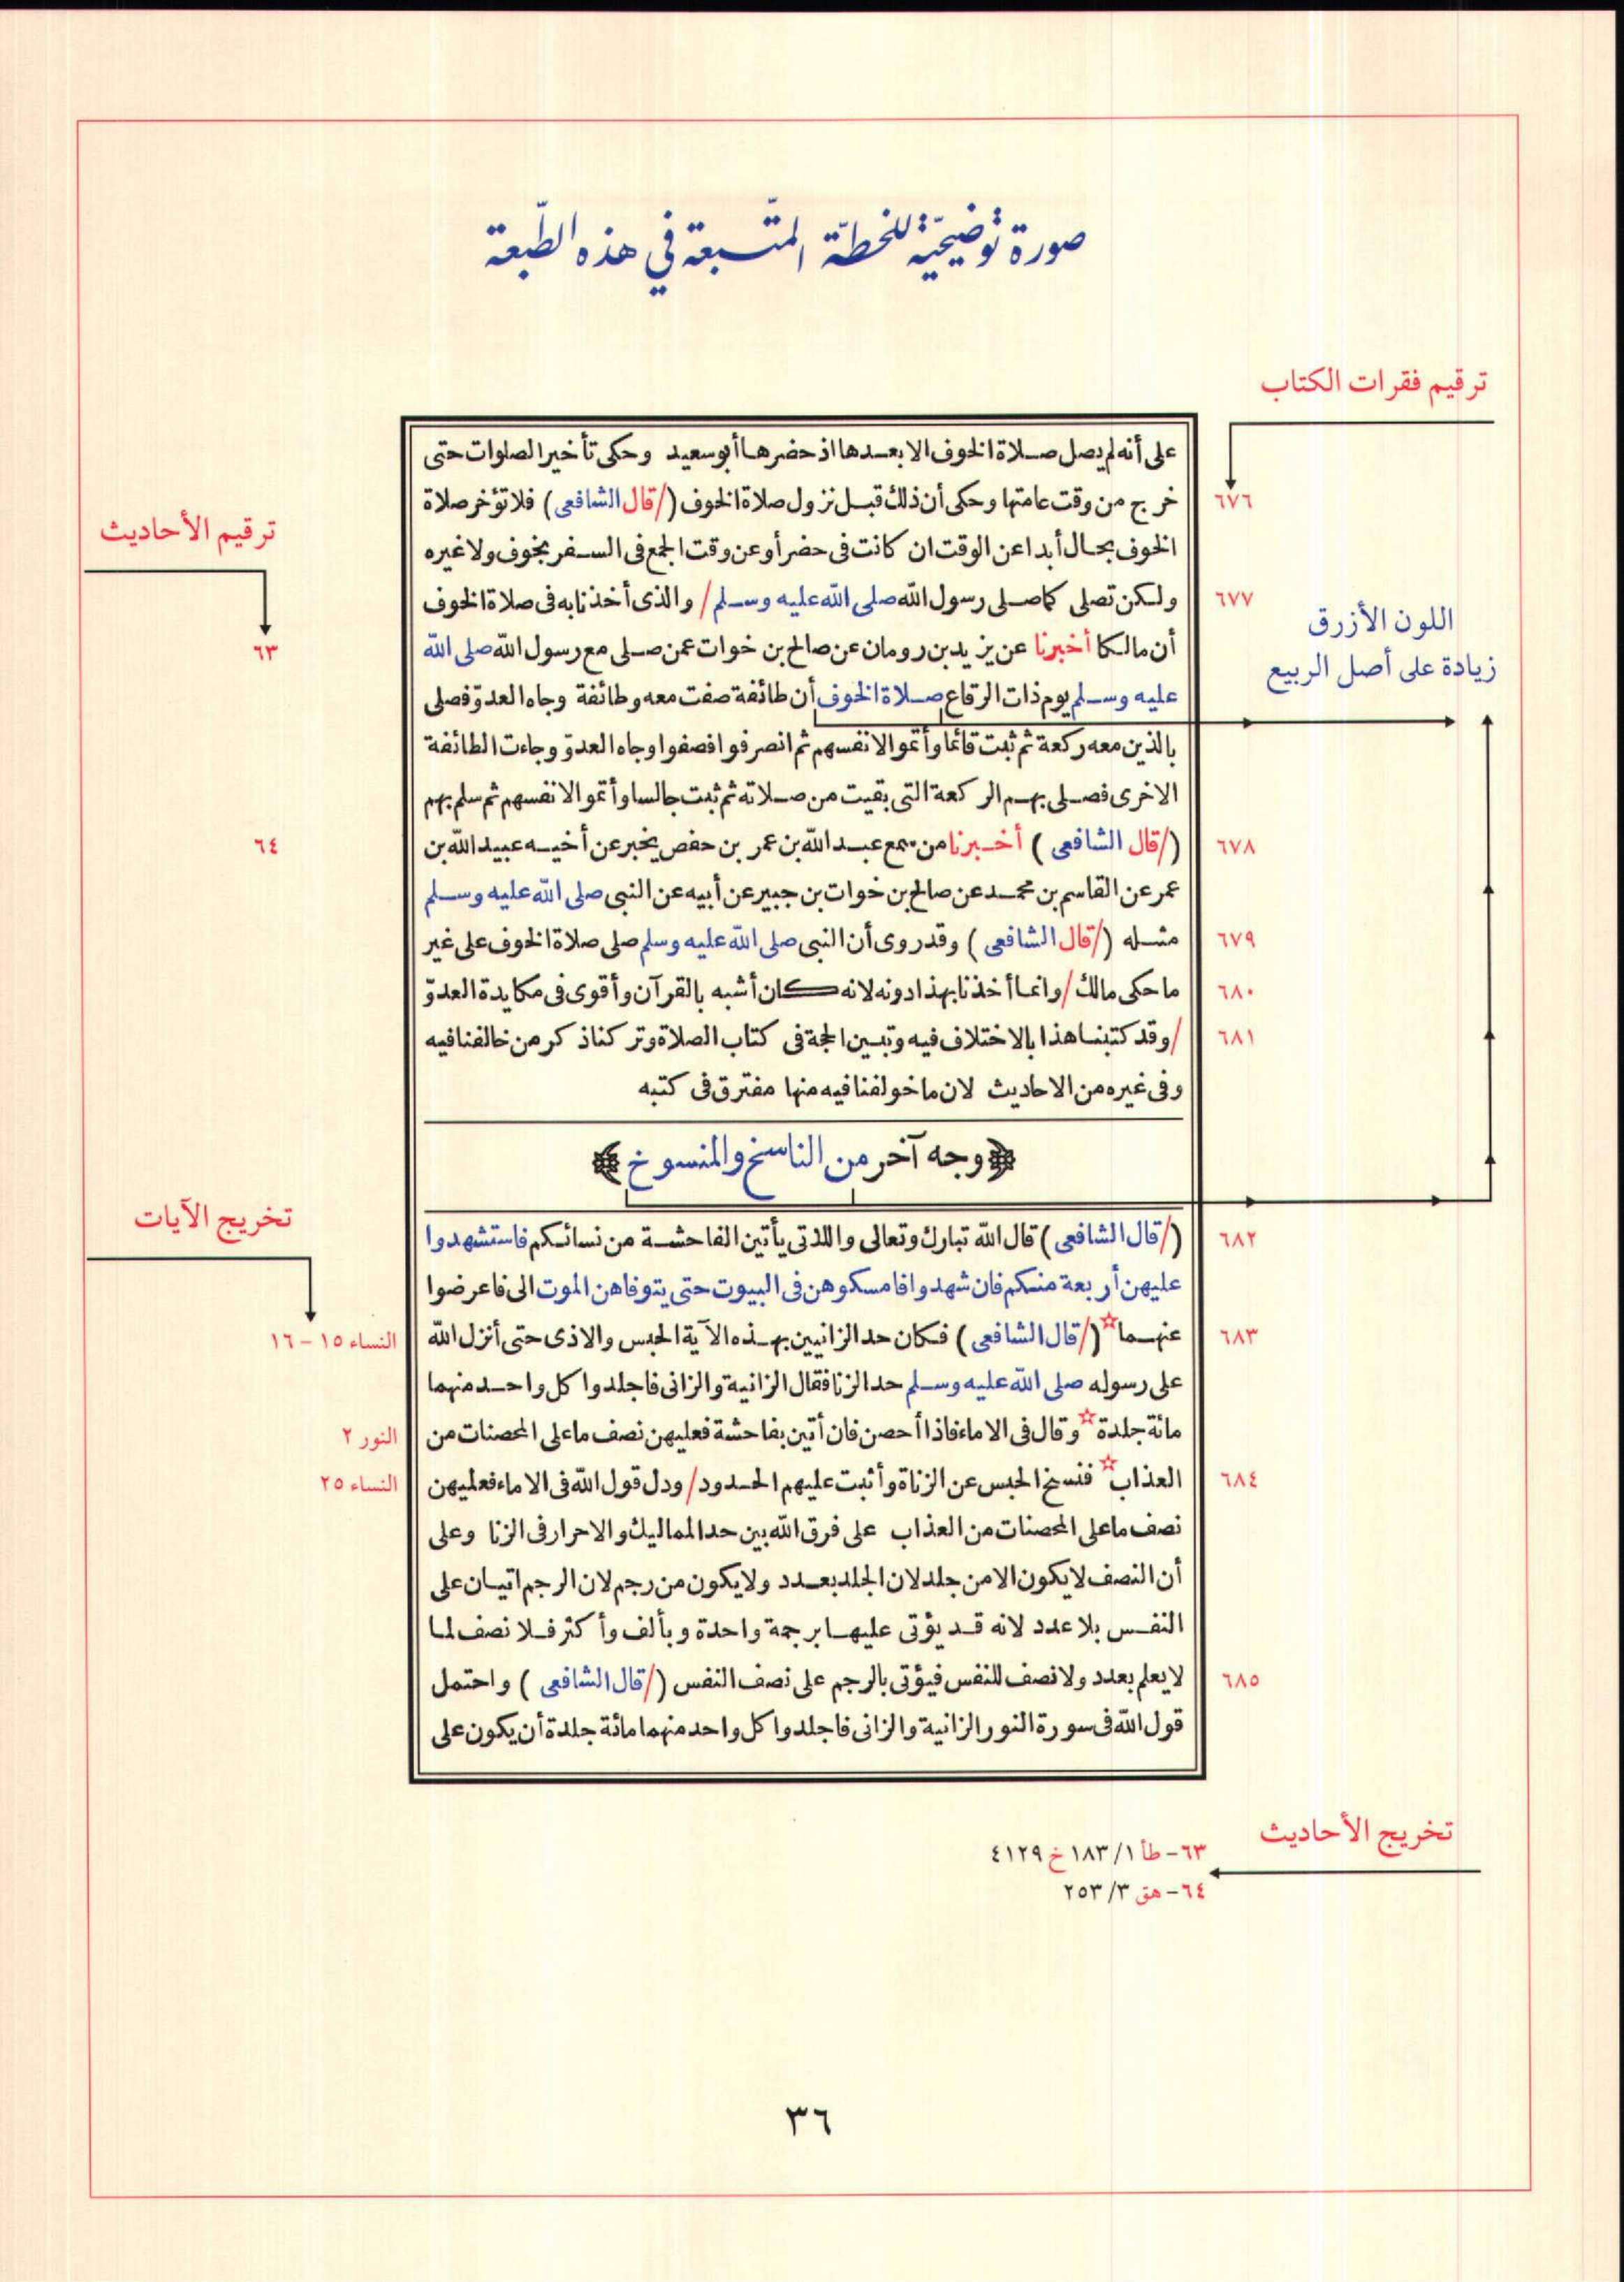 صورة توضيحية للخطة المتبعة في هذه الطبعة
ترقيم فقرات الكتاب
على أنه لم يصل صلاة الخوف الا بعدها اذ حضرها أبو سعيد وحكى تأخير الصلوات حتى
٦٧٦ خرج من وقت عامتها وحكى أن ذلك قبل نزول صلاة الخوف (/قال الشافعى) فلا تؤخر صلاة
ترقيم الأحاديث
الخوف بحال أبدا عن الوقت ان كانت فى حضر أو عن وقت الجمع فى السفر بخوف ولا غيره
٦٧٧ ولكن تصلى كما صلى رسول الله صلى الله عليه وسلم/ والذى أخذنا به فى صلاة الخوف
اللون الأزرق
زيادة على أصل الربيع
أن مالكا أخبرنا عن يزيد بن رومان عن صالح بن خوات عمن صلى مع رسول الله صلى الله ٦٣
عليه وسلم يوم ذات الرقاع صلاة الخوف أن طائفة صفت معه وطائفة وجاه العدو فصلى
بالذين معه ركعة ثم ثبت قائما وأتموا لانفسهم ثم انصرفوا فصفوا وجاه العدو وجاءت الطائفة
الاخرى فصلى بهم الركعة التى بقيت من صلاته ثم ثبت جالسا وأتموا لانفسهم ثم سلم بهم
٦٧٨ (/قال الشافعى) أخبرنا من سمع عبد الله بن عمر بن حفص يخبر عن أخيه عبيد الله بن ٦٤
عمر عن القاسم بن محمد عن صالح بن خوات بن جبير عن أبيه عن النبى صلى الله عليه وسلم
٦٧٩ مثله (/قال الشافعى) وقد روى أن النبى صلى الله عليه وسلم صلى صلاة الخوف على غير
٦٨٠ ما حكى مالك/ وانما أخذنا بهذا دونه لانه كان أشبه بالقرآن وأقوى فى مكايدة العدو
٦٨١ /وقد كتبنا هذا بالاختلاف فيه وتبين الحجة فى كتاب الصلاة وتركنا ذكر من خالفنا فيه
وفى غيره من الاحاديث لان ما خولفنا فيه منها مفترق فى كتبه
وجه آخر من الناسخ والمنسوخ
تخريج الآيات
٦٨٢ (/قال الشافعى) قال الله تبارك وتعالى واللاتى يأتين الفاحشة من نسائكم فاستشهدوا
عليهن أربعة منكم فان شهدوا فامسكوهن فى البيوت حتى يتوفاهن الموت الى فاعرضوا
٦٨٣ عنهما (/قال الشافعى) فكان حد الزانيين بهذه الآية الحبس والاذى حتى أنزل الله النساء ١٥ - ١٦
على رسوله صلى الله عليه وسلم حد الزنا فقال الزانية والزانى فاجلدوا كل واحد منهما
مائة جلدة وقال فى الاماء فاذا أحصن فان أتين بفاحشة فعليهن نصف ما على المحصنات من النور ٢
٦٨٤ العذاب فنسخ الحبس عن الزناة وأثبت عليهم الحدود/ ودل قول الله فى الاماء فعليهن النساء ٢٥
نصف ما على المحصنات من العذاب على فرق الله بين حد المماليك والاحرار فى الزنا وعلى
أن النصف لا يكون الا من جلد لان الجلد بعدد ولا يكون من رجم لان الرجم اتيان على
النفس بلا عدد لانه قد يؤتى عليها برجمة واحدة وبألف وأكثر فلا نصف لما
٦٨٥ لا يعلم بعدد ولا نصف للنفس فيؤتى بالرجم على نصف النفس (/قال الشافعى) واحتمل
قول الله فى سورة النور الزانية والزانى فاجلدوا كل واحد منهما مائة جلدة أن يكون على
تخريج الأحاديث
٦٣ - طأ ١/ ١٨٣ خ ٤١٢٩
٦٤ - هق ٣/ ٢٥٣
٣٦